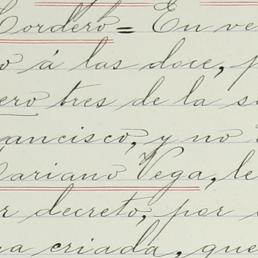 Cordero = En ve
o á las doce, p
ero tres de la s
rancisco, y no
ariano Vega, le
r decreto, por
a criada, que